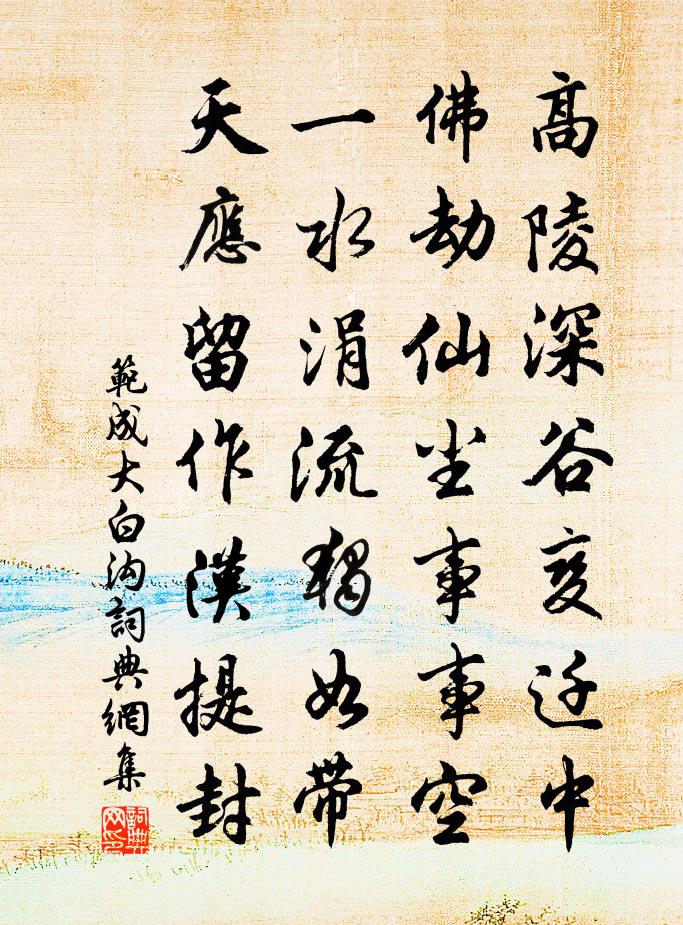 高陵深谷变迁中
佛劫仙尘事事空
一水涓流独如带
天應留作漢提封
範成大白沟詞典網集
詞典网印